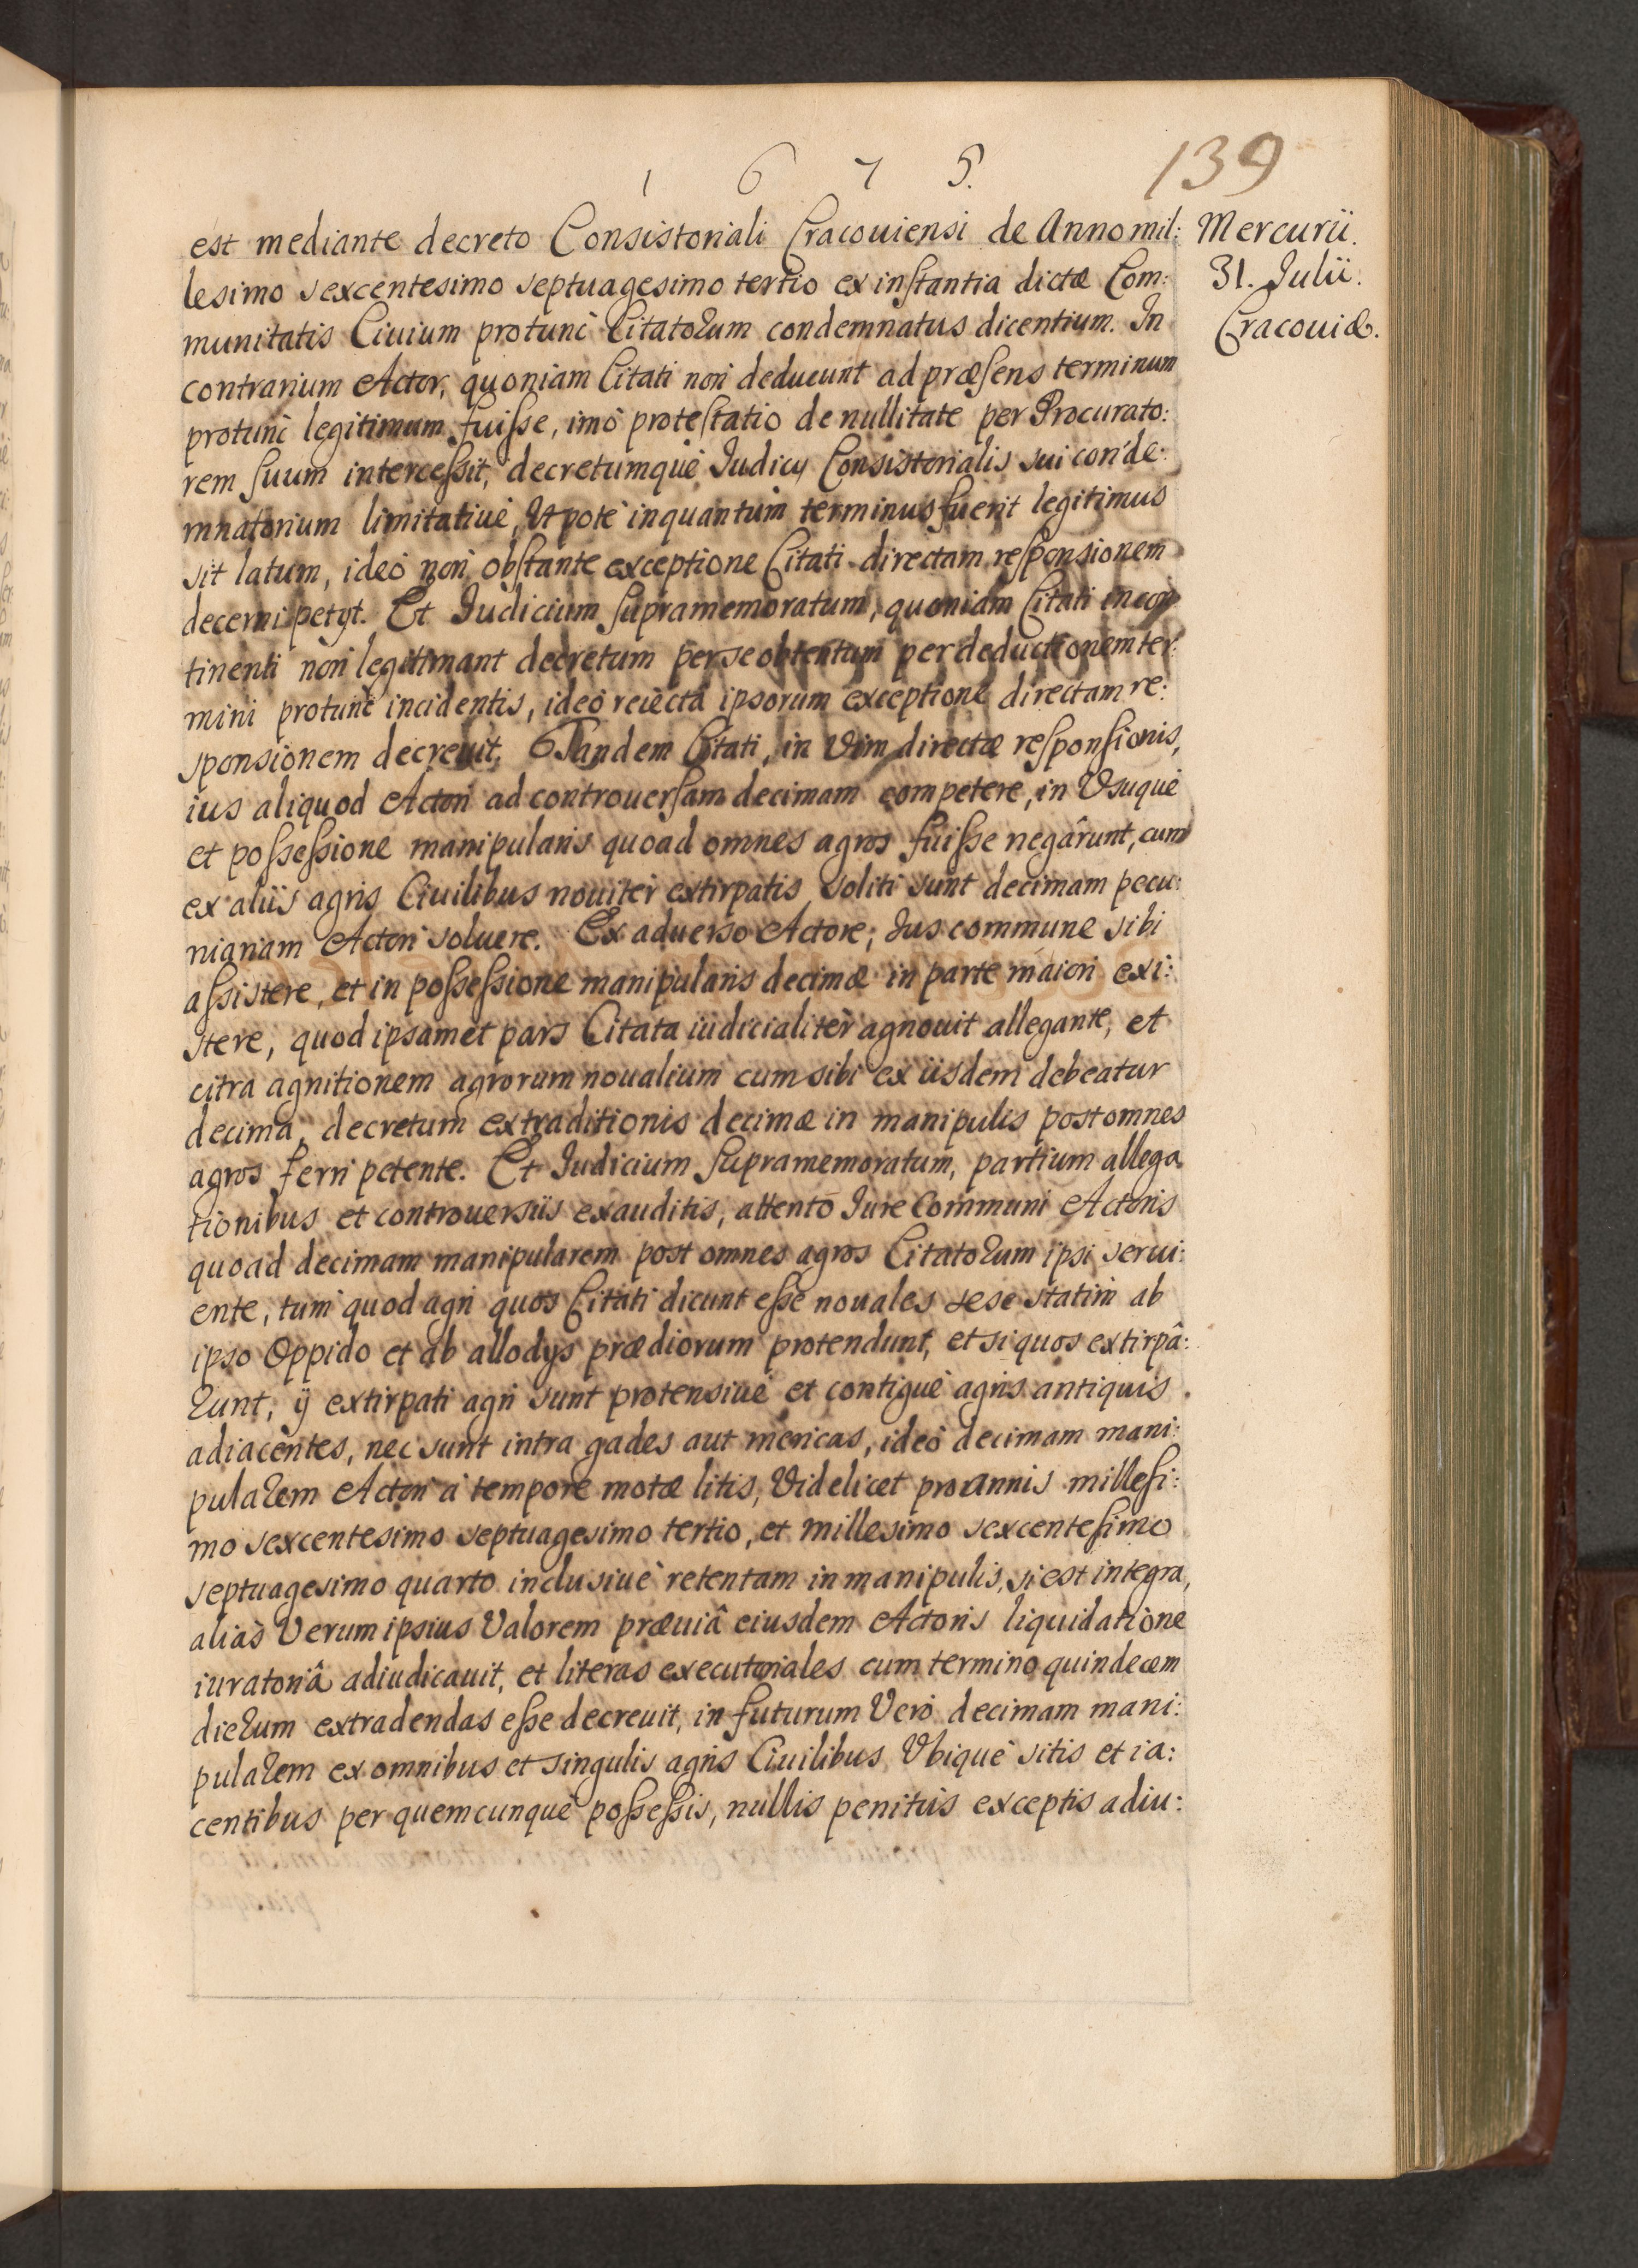 1 6 7 5.
139
est mediante decreto Consistoriali Cracouiensi de Anno mil:
lesimo sexcentesimo septuagesimo tertio ex instantia dictæ Com:
munitatis Ciuium protunc Citatorum condemnatus dicentium. In
contrarium Actor, quoniam Citati non deducunt ad præsens terminum
protunc legitimum fuisse, imò protestatio de nullitate per Procurato:
rem suum intercessit, decretumquè Iudicij Consistorialis sui conde:
mnatorium limitatiuè, Utpotè inquantùm terminus fuerit legitimus
sit latum, ideò non obstante exceptione Citati directam responsionem
decerni petijt. Et Iudicium supramemoratum, quoniam Citati in con
tinenti non legitimant decretum per se obtentum per deductionem ter:
mini protunc incidentis, ideò reiectâ ipsorum exceptione directam re:
sponsionem decreuit. Tandem Citati, in Vim directæ responsionis,
ius aliquod Actori ad controuersam decimam competere, in Usuquè
et possessione manipularis quoad omnes agros fuisse negârunt, cum
ex aliis agris Ciuilibus nouiter extirpatis soliti sunt decimam pecu:
niariam Actori soluere. Ex aduerso Actore; Ius commune sibi
assistere, et in possessione manipularis decimæ in parte maiori exi:
stere, quod ipsamet pars Citata iudicialitèr agnouit allegante, et
citra agnitionem agrorum noualium cum sibi ex iisdem debeatur
decima, decretum extraditionis decimæ in manipulis post omnes
agros ferri petente. Et Iudicium supramemoratum, partium allega
tionibus et controuersiis exauditis, attento Iure Communi Actoris
quoad decimam manipularem post omnes agros Citatorum ipsi serui:
ente, tum quod agri quos Citati dicunt esse nouales sese statim ab
ipso Oppido et ab allodijs prædiorum protendunt, et si quos extirpâ:
runt, ij extirpati agri sunt protensiuè et contiguè agris antiquis
adiacentes, nec sunt intra gades aut mericas, ideò decimam mani:
pularem Actori à tempore motæ litis, Videlicet pro annis millesi:
mo sexcentesimo septuagesimo tertio, et millesimo sexcentesimo
septuagesimo quarto inclusiuè retentam in manipulis, si est integra,
aliàs Verum ipsius Valorem præuiâ eiusdem Actoris liquidatione
iuratoriâ adiudicauit, et literas executoriales cum termino quindecem
dierum extradendas esse decreuit, in futurum Verò decimam mani:
pularem ex omnibus et singulis agris Ciuilibus Ubiquè sitis et ia:
centibus per quemcunquè possessis, nullis penitùs exceptis adiu:
Mercurii.
31. Iulii.
Cracouiæ.